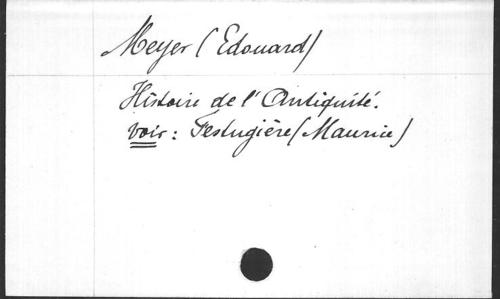 Meyer (Edouard)
Histoire de l'Antiquité.
voir : Festugière (Maurice)